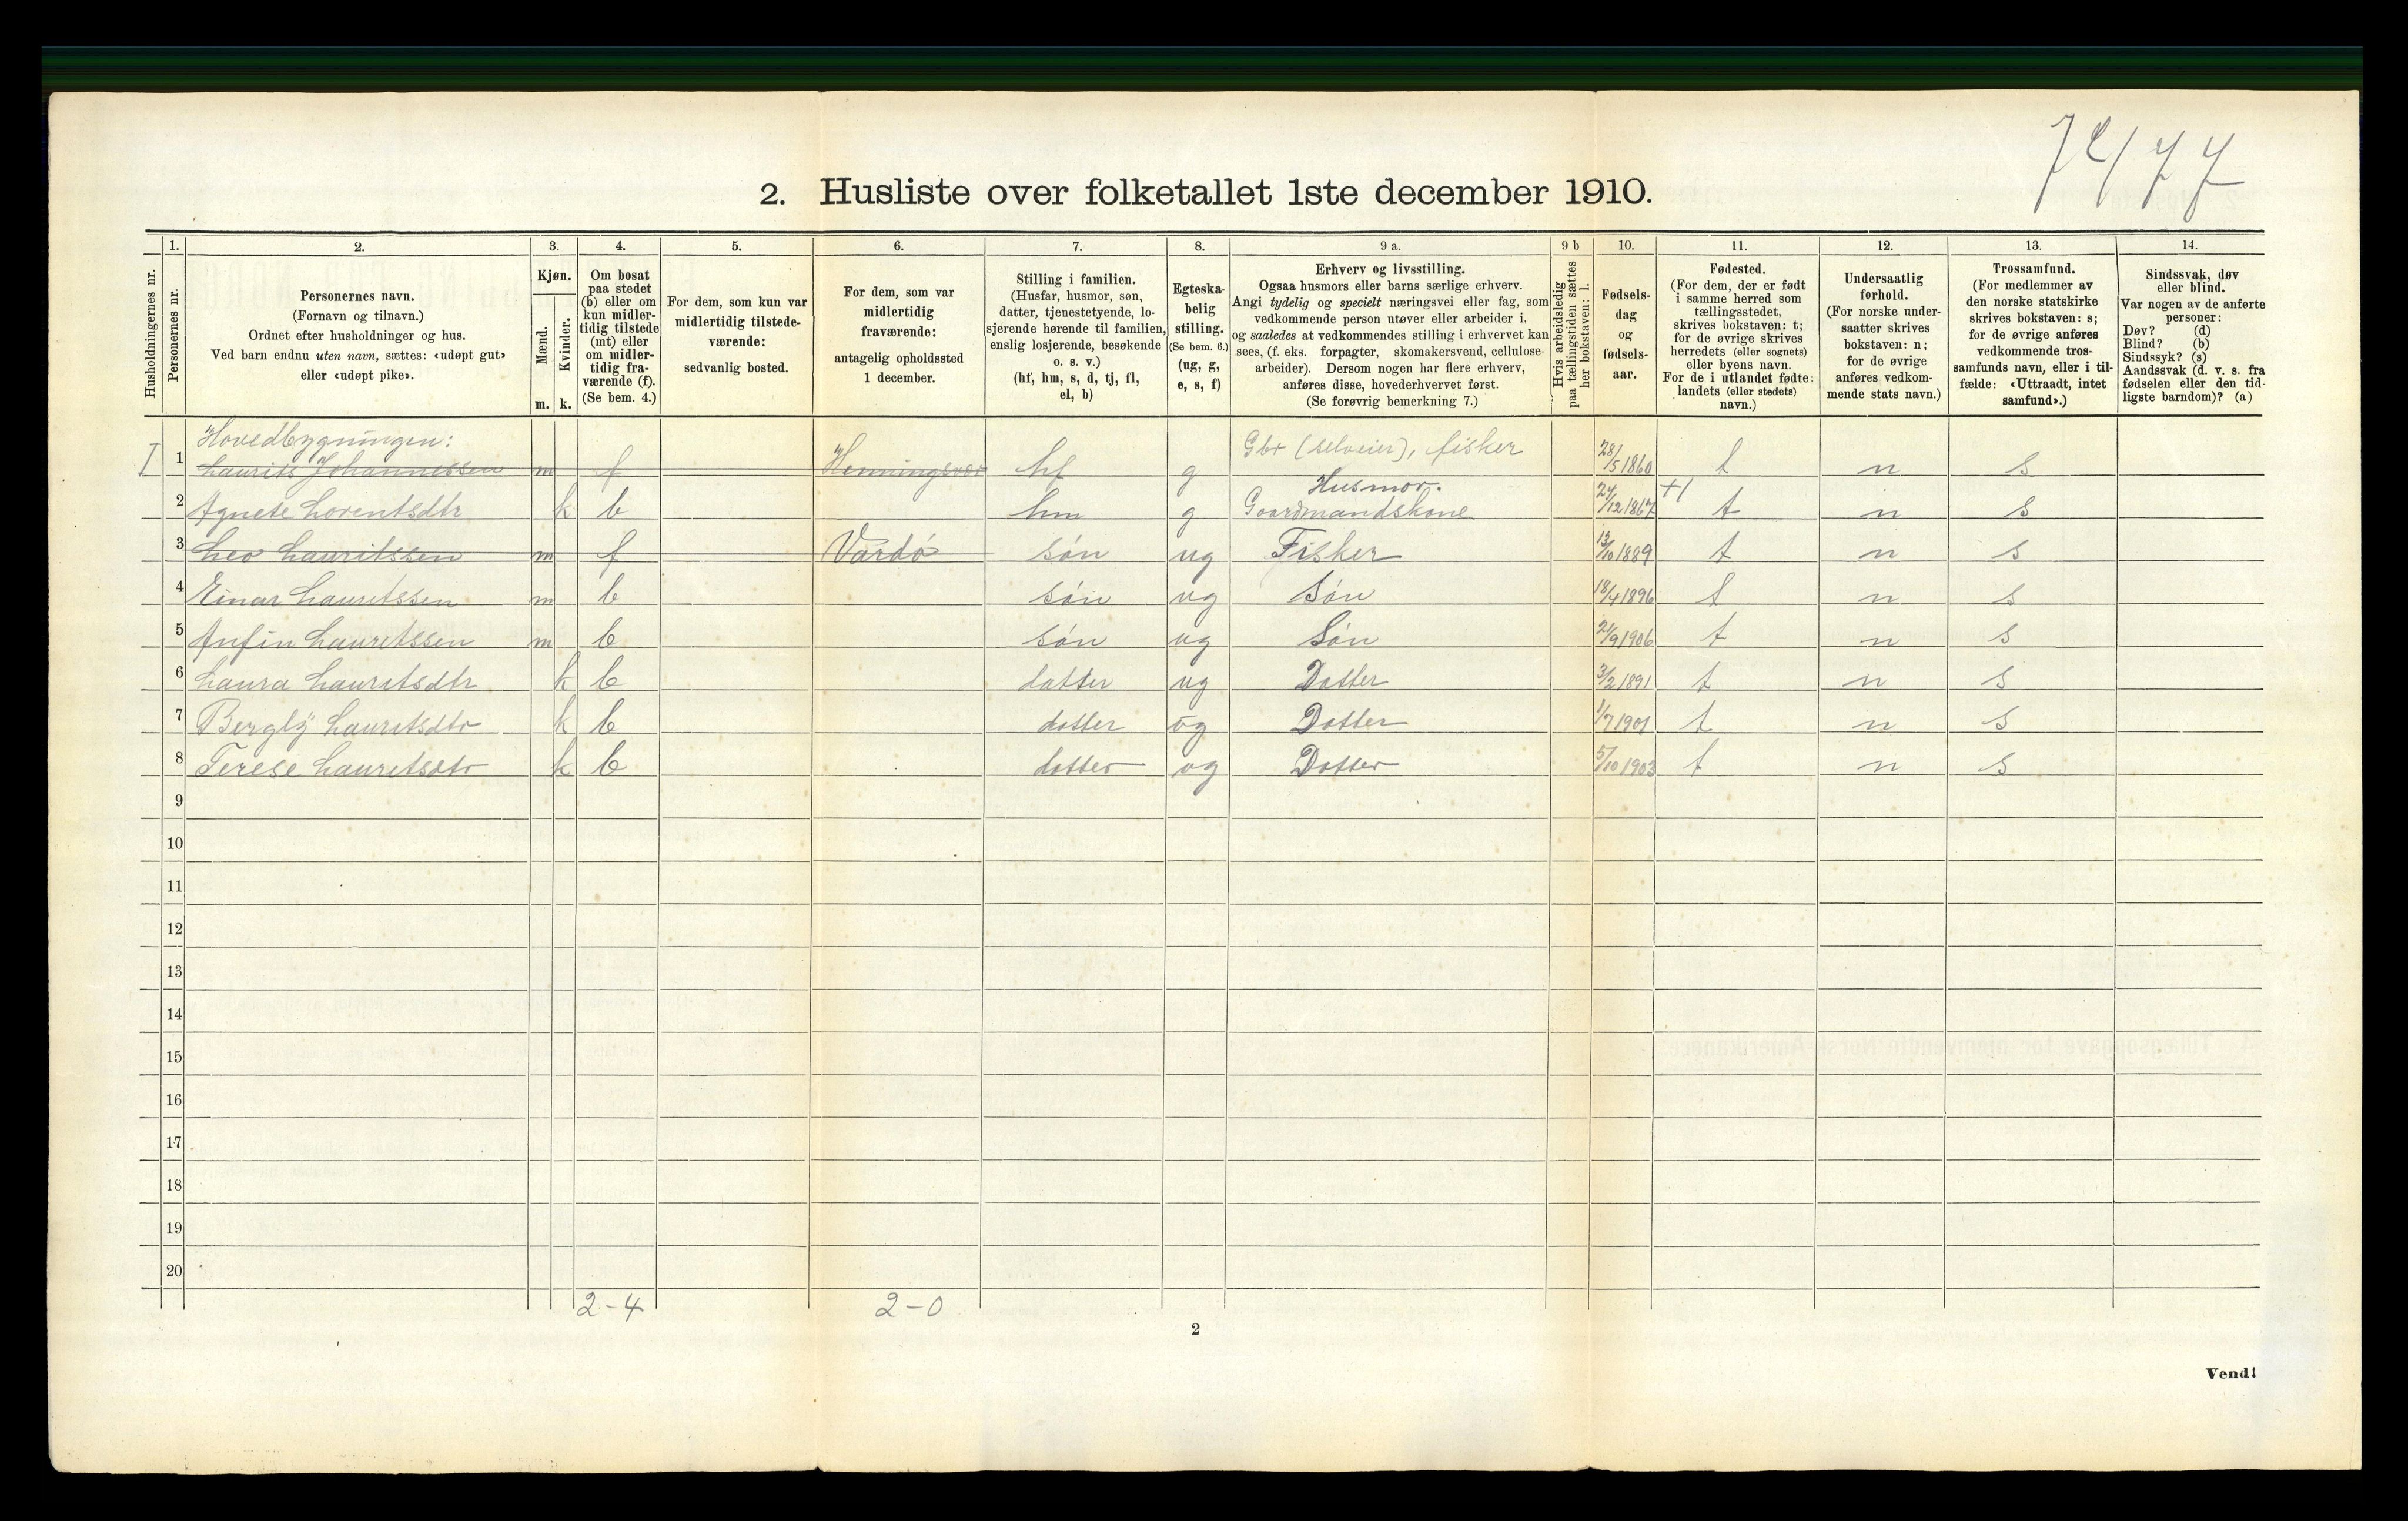 7 / 77
2. Husliste over folketallet 1ste december 1910.
Husholdningernes nr.
1. Personernes nr.
2. Personernes navn.
(Fornavn og tilnavn.)
Ordnet efter husholdninger og hus.
Ved barn endnu uten navn, sættes: «udøpt gut»
eller «udøpt pike».
3. Kjøn.
Mænd. m.
Kvinder. k.
4. Om bosat
paa stedet
(b) eller om
kun midler-
tidig tilstede
(mt) eller
om midler-
tidig fra-
værende (f).
(Se bem. 4.)
5. For dem, som kun var
midlertidig tilstede-
værende:
sedvanlig bosted.
6. For dem, som var
midlertidig
fraværende:
antagelig opholdssted
1 december.
7. Stilling i familien.
(Husfar, husmor, søn,
datter, tjenestetyende, lo-
sjerende hørende til familien,
enslig losjerende, besøkende
o. s. v.)
(hf, hm, s, d, tj, fl,
el, b)
8. Egteska-
belig
stilling.
(Se bem. 6.)
(ug, g,
e, s, f)
9 a. Erhverv og livsstilling.
Ogsaa husmors eller barns særlige erhverv.
Angi tydelig og specielt næringsvei eller fag, som
vedkommende person utøver eller arbeider i,
og saaledes at vedkommendes stilling i erhvervet kan
sees, (f. eks. forpagter, skomakersvend, cellulose-
arbeider). Dersom nogen har flere erhverv,
anføres disse, hovederhvervet først.
(Se forøvrig bemerkning 7.)
9 b Hvis arbeidsledig
paa tællingstiden sættes
her bokstaven: l.
10. Fødsels-
dag
og
fødsels-
aar.
11. Fødested.
(For dem, der er født
i samme herred som
tællingsstedet,
skrives bokstaven: t;
for de øvrige skrives
herredets (eller sognets)
eller byens navn.
For de i utlandet fødte:
landets (eller stedets)
navn.)
12. Undersaatlig
forhold.
(For norske under-
saatter skrives
bokstaven: n;
for de øvrige
anføres vedkom-
mende stats navn.)
13. Trossamfund.
(For medlemmer av
den norske statskirke
skrives bokstaven: s;
for de øvrige anføres
vedkommende tros-
samfunds navn, eller i til-
fælde: «Uttraadt, intet
samfund».)
14. Sindssvak, døv
eller blind.
Var nogen av de anførte
personer:
Døv? (d)
Blind? (b)
Sindssyk? (s)
Aandssvak (d. v. s. fra
fødselen eller den tid-
ligste barndom)? (a)
Hovedbygningen:
I 1 Laurits Johannessen m f Henningsvær hf g Gbr (selveier), fisker 28/5 1860 t n s
2 Agnete Lorentsdtr k b hm g Husmor. Gaardmandskone 24/12 1867 +1 t n s
3 Leo Lauritssen m f Vardö sön ug Fisker 13/10 1889 t n s
4 Einar Lauritssen m b sön ug Sön 18/4 1896 t n s
5 Anfin Lauritssen m b sön ug Sön 21/9 1906 t n s
6 Laura Lauritsdtr k b datter ug Datter 3/2 1891 t n s
7 Bergly Lauritsdtr k b datter ug Datter 1/7 1901 t n s
8 Terese Lauritsdtr k b datter ug Datter 5/10 1903 t n s
9
10
11
12
13
14
15
16
17
18
19
20
2-4 2-0
2
Vend!